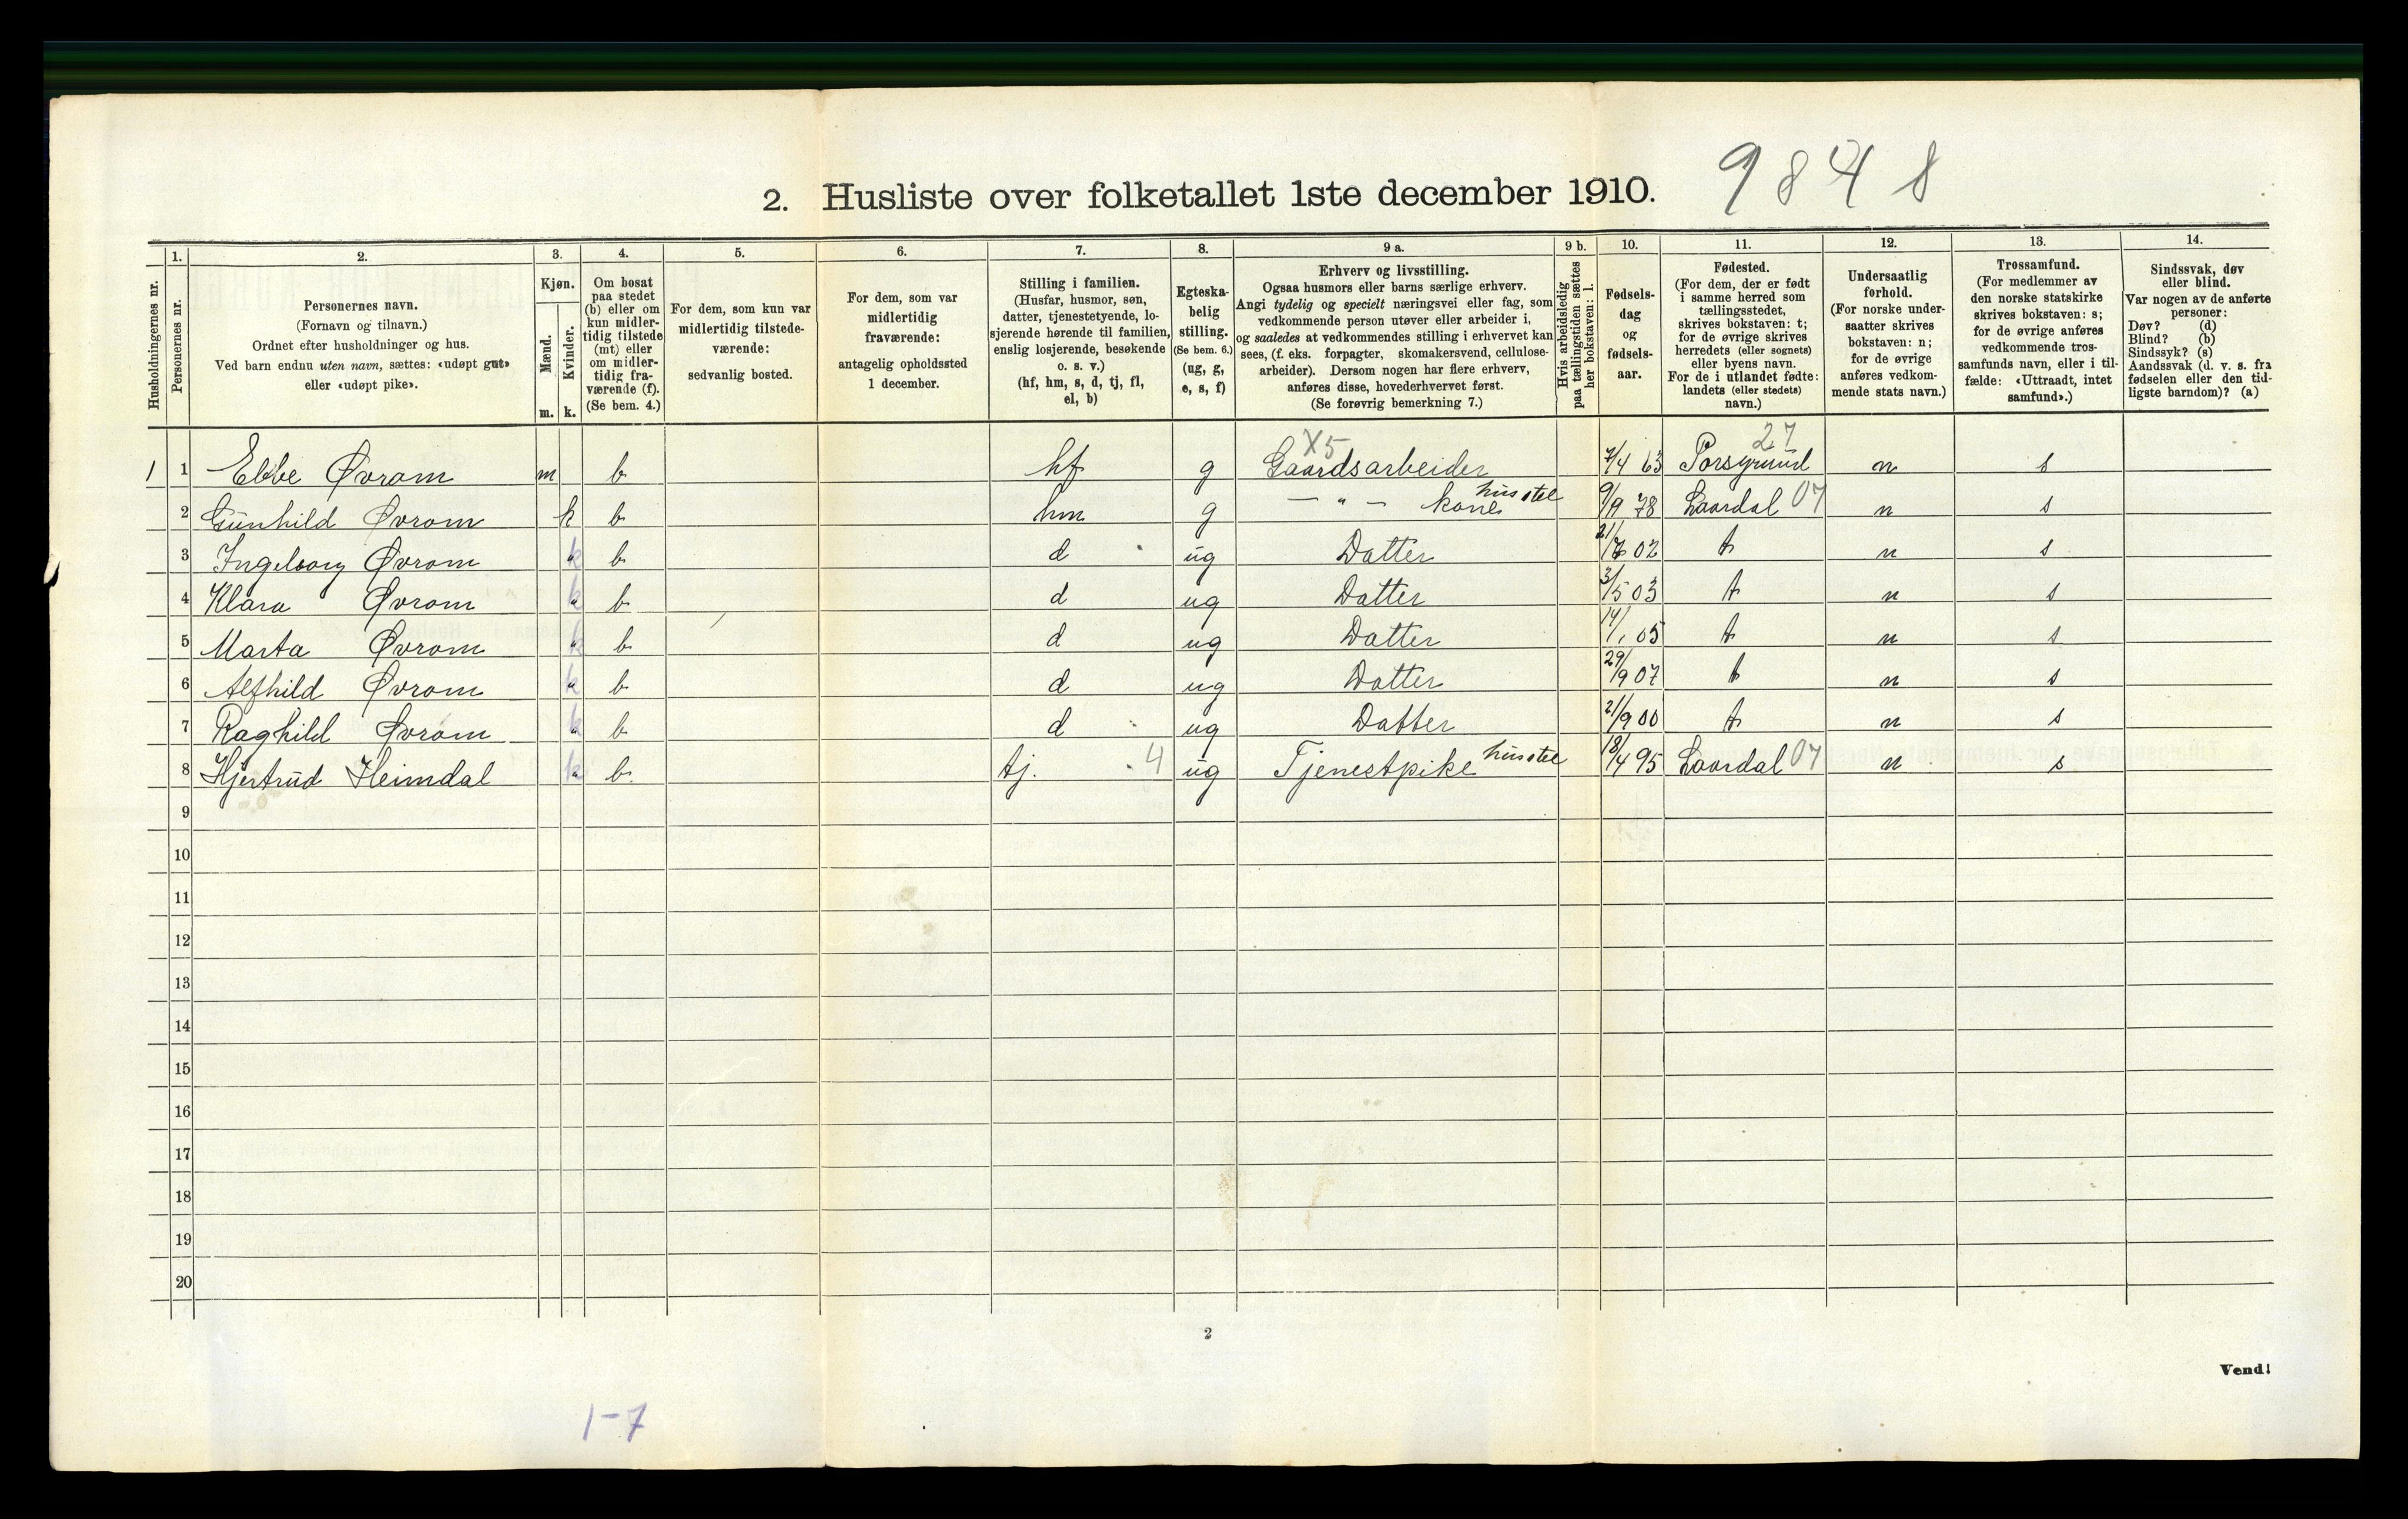 9848
2. Husliste over folketallet 1ste december 1910.
Husholdningernes nr.
1.
Personernes nr.
2.
Personernes navn.
(Fornavn og tilnavn.)
Ordnet efter husholdninger og hus.
Ved barn endnu uten navn, sættes: «udøpt gut»
eller «udøpt pike».
3.
Kjøn.
Mænd.
Kvinder.
m. k.
4.
Om bosat
paa stedet
(b) eller om
kun midler-
tidig tilstede
(mt) eller
om midler-
tidig fra-
værende (f).
(Se bem. 4.)
5.
For dem, som kun var
midlertidig tilstede-
værende:
sedvanlig bosted.
6.
For dem, som var
midlertidig
fraværende:
antagelig opholdssted
1 december.
7.
Stilling i familien.
(Husfar, husmor, søn,
datter, tjenestetyende, lo-
sjerende hørende til familien,
enslig losjerende, besøkende
o. s. v.)
(hf, hm, s, d, tj, fl,
el, b)
8.
Egteska-
belig
stilling.
(Se bem. 6.)
(ug, g,
e, s, f)
9 a.
Erhverv og livsstilling.
Ogsaa husmors eller barns særlige erhverv.
Angi tydelig og specielt næringsvei eller fag, som
vedkommende person utøver eller arbeider i,
og saaledes at vedkommendes stilling i erhvervet kan
sees, (f. eks. forpagter, skomakersvend, cellulose-
arbeider). Dersom nogen har flere erhverv,
anføres disse, hovederhvervet først.
(Se forøvrig bemerkning 7.)
9 b.
Hvis arbeidsledig
paa tællingstiden sættes
her bokstaven: l.
10.
Fødsels-
dag
og
fødsels-
aar.
11.
Fødested.
(For dem, der er født
i samme herred som
tællingsstedet,
skrives bokstaven: t;
for de øvrige skrives
herredets (eller sognets)
eller byens navn.
For de i utlandet fødte:
landets (eller stedets)
navn.)
12.
Undersaatlig
forhold.
(For norske under-
saatter skrives
bokstaven: n;
for de øvrige
anføres vedkom-
mende stats navn.)
13.
Trossamfund.
(For medlemmer av
den norske statskirke
skrives bokstaven: s;
for de øvrige anføres
vedkommende tros-
samfunds navn, eller i til-
fælde: «Uttraadt, intet
samfund».)
14.
Sindssvak, døv
eller blind.
Var nogen av de anførte
personer:
Døv? (d)
Blind? (b)
Sindssyk? (s)
Aandssvak (d. v. s. fra
fødselen eller den tid-
ligste barndom)? (a)
X5 27
1 1 Ebbe Øvrom m b hf g Gaardsarbeider 7/4 63 Porsgrund n s
2 Gunhild Øvrom k b hm g — " — kone husstel 9/9 78 Laardal 07 n s
3 Ingeborg Øvrom k b d ug Datter 02 t n s
4 Klara Øvrom k b d ug Datter 3/5 03 t n s
5 Marta Øvrom k b d ug Datter 14/1 05 t n s
6 Alfhild Øvrom k b d ug Datter 29/9 07 t n s
7 Raghild Øvrom k b d ug Datter 21/9 00 t n s
8 Hjertrud Heimdal k b tj. 4 ug Tjenestpike husstel 18/4 95 Laardal 07 n s
9
10
11
12
13
14
15
16
17
18
19
20
2
Vend!
1-7